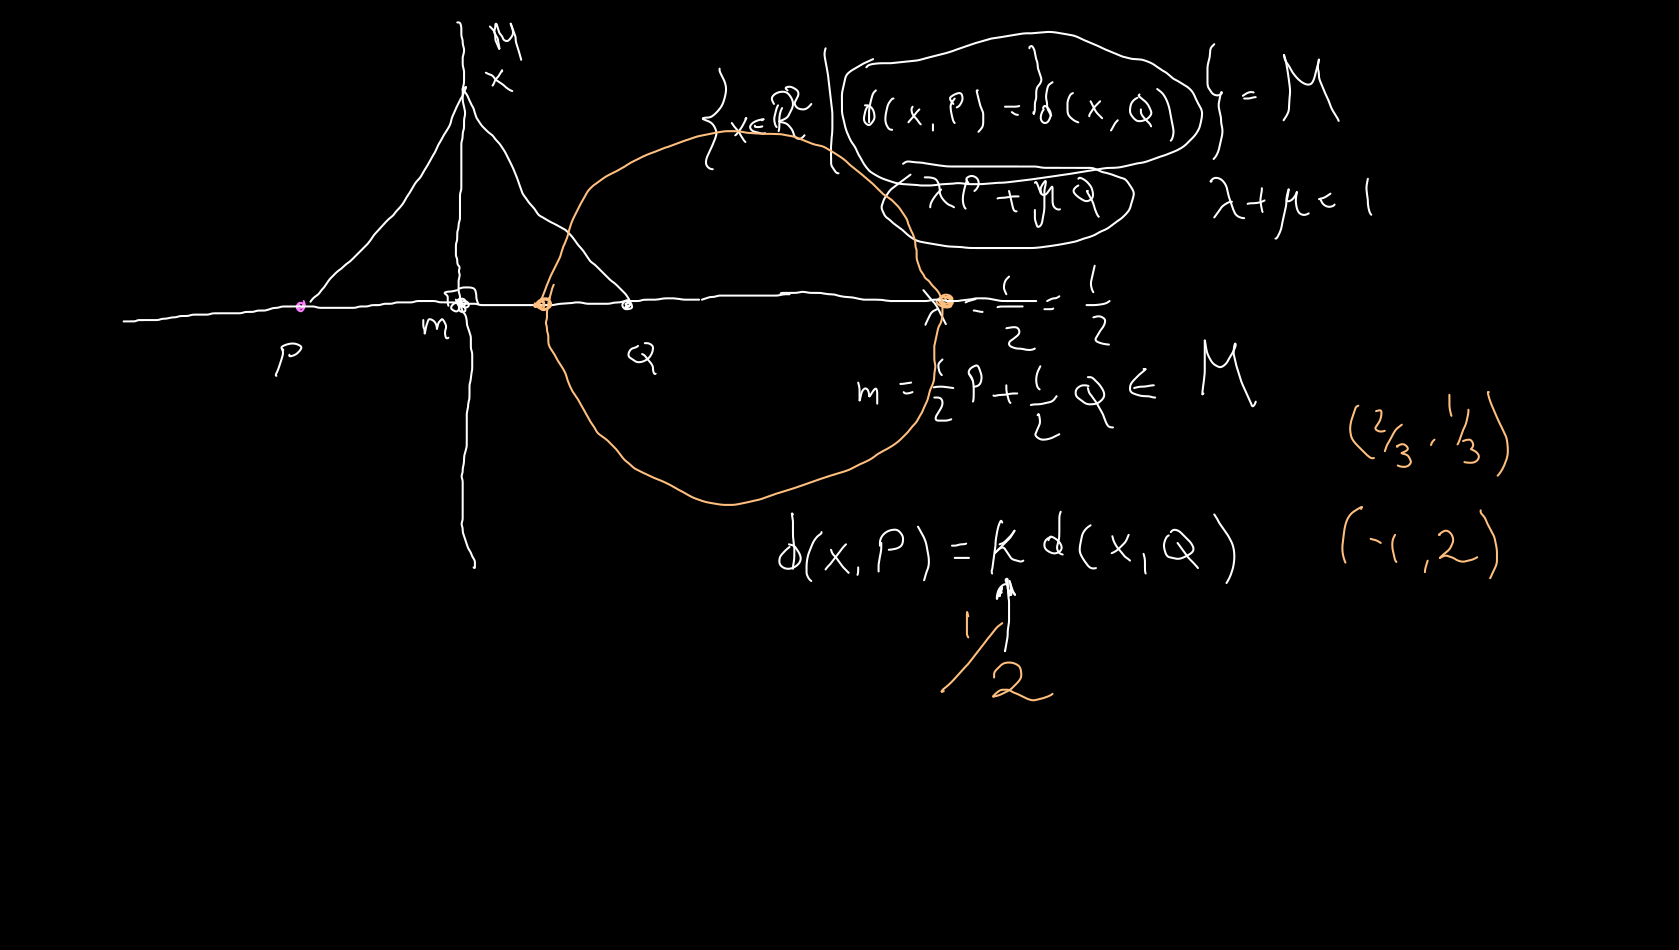 M
x
{x∈ℝ² | d(x,P) = d(x,Q)} = M
λP + μQ
λ+μ = 1
m
P
Q
λ = 1/2 = 1/2
m = 1/2 P + 1/2 Q ∈ M
(2/3, 1/3)
d(x,P) = k d(x,Q)
(-1, 2)
1/2